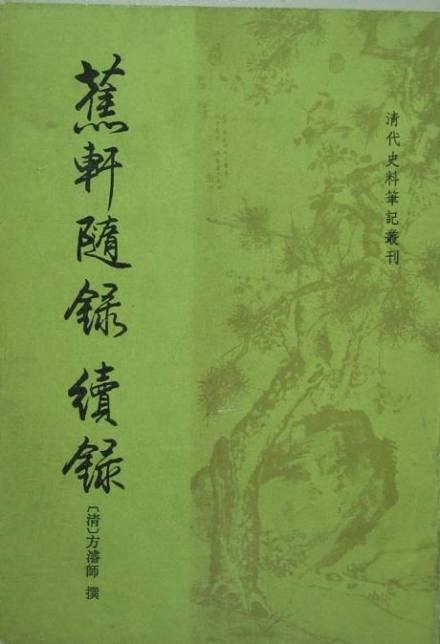 清代史料筆記叢刊
蕉軒隨録 續録
〔清〕方濬師 撰